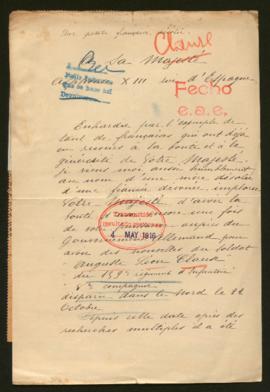 Une petite française
Clausel
Sa Majesté
Alphonse XIII roi d'Espagne
Fecho
e.a.e.
Enhardie par l'exemple de
tant de français qui ont déjà
eu recours à la bonté et à la
générosité de Votre Majesté
Je viens moi aussi humblement
au nom d'une mère désolée
d'une fiancée dévouée implorer
Votre Majesté d'avoir la
bonté une fois
de auprès du
Gouvernement allemand pour
avoir des nouvelles du soldat
4 MAY 1915
Auguste Léon Clausel
du 159e régiment d'infanterie
8e compagnie
disparu dans le Nord le 22
Octobre
Depuis cette date après des
recherches multiples il a été